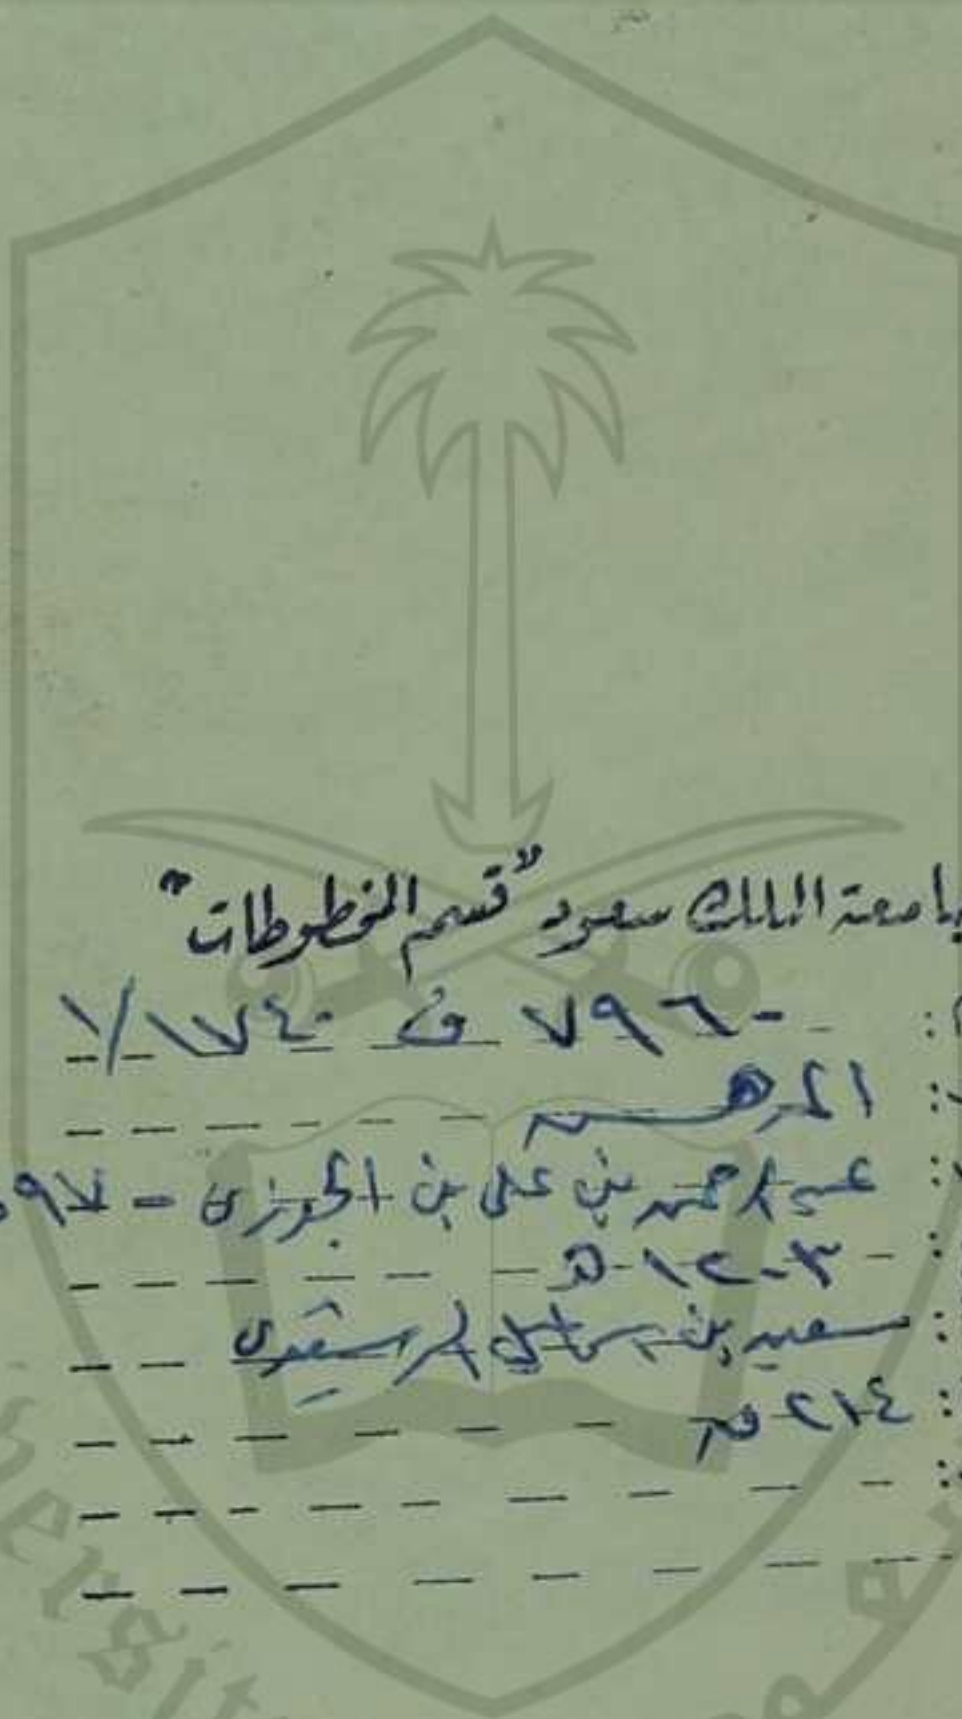 جامعة الملك سعود "قسم المخطوطات"
: ٧٩٦٠ ف ١٧٤٠/١
: المدهش
: عبد الرحمن بن علي بن الجوزي - ٥٩٧
: ١٢٠٣ هـ
: سعيد بن
: ٢١٤ ق
:
versit